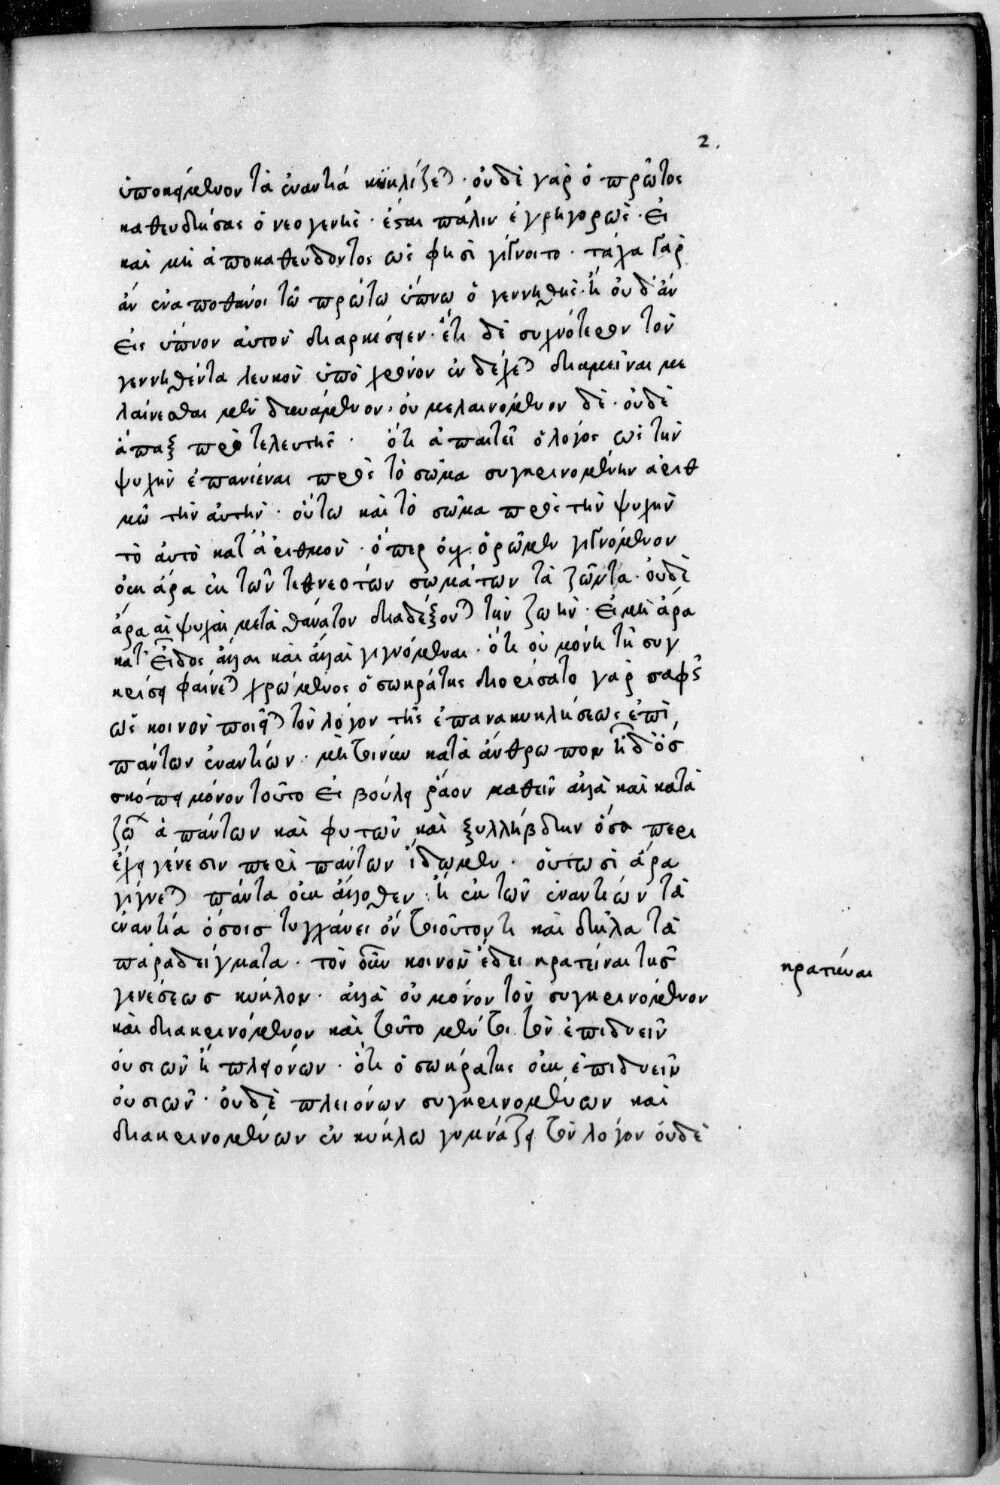 2.
ὑποκείμενον τὰ ἐναντιά κυκλίζεται · οὐδὲ γὰρ ὁ πρῶτος
καθευδήσας ὁ νεογενὴς · ἔσται πάλιν ἐγρηγορὼς · εἰ
καὶ μὴ ἀποκαθεύδοντος ὡς φησὶ γίγνοιτο · τάχα γὰρ
ἂν ἐναποθάνοι τῶ πρώτω ὕπνω ὁ γεννηθεὶς · ἢ οὐδ' ἂν
εἰς ὕπνον αὐτὸν διαρκέσειεν · ἔτι δὲ συχνότερον τὸν
γεννηθέντα λευκὸν ὑπὸ χρόνον ἐνδέχεται διαμεῖναι με
λαίνεσθαι μὲν δυνάμενον · οὐ μελαινόμενον δὲ · οὐδὲ
ἅπαξ πρὸ τελευτῆς · ὅτι ἀπαιτεῖ ὁ λόγος ὡς τὴν
ψυχὴν ἐπανιέναι πρὸς τὸ σῶμα συγκρινομένην ἀριθ
μῶ τὴν αὐτὴν · οὕτω καὶ τὸ σῶμα πρὸς τὴν ψυχὴν
τὸ αὐτὸ κατ' ἀριθμὸν · ὅπερ οὐχ ὁρῶμεν γιγνόμενον
οὐκ ἄρα ἐκ τῶν τεθνεότων σωμάτων τὰ ζῶντα · οὐδὲ
ἄρα αἱ ψυχαὶ μετὰ θάνατον διαδέξονται τὴν ζωὴν · εἰ μὴ ἄρα
κατ' εἶδος ἄλλαι καὶ ἄλλαι γιγνόμεναι · ὅτι οὐ μόνη τῆ συγ
κρίσει φαίνεται χρώμενος ὁ σωκράτης διορίσατο γὰρ σαφῶς
ὡς κοινὸν ποιεῖται τὸν λόγον τῆς ἐπανακυκλήσεως ἐπὶ
πάντων ἐναντίων · μὴ τοίνυν κατὰ ἀνθρώπων
σκόπει μόνον τοῦτο εἰ βούλει ῥᾶον μαθεῖν ἀλλὰ καὶ κατὰ
ζώων ἁπάντων καὶ φυτῶν καὶ ξυλλήβδην ὅσα περ
ἔχει γένεσιν περὶ πάντων ἴδωμεν · οὑτωσὶ ἄρα
γίγνεται πάντα οὐκ ἄλλοθεν ἢ ἐκ τῶν ἐναντίων τὰ
ἐναντία ὅσοις τυγχάνει ὂν τοιοῦτον τι καὶ δῆλα τὰ
παραδείγματα · τὸν οὖν κοινὸν ἔδει κρατεῖναι τῆς
γενέσεως κύκλον · ἀλλὰ οὐ μόνον τὸν συγκρινόμενον
καὶ διακρινόμενον καὶ τοῦτο μέντοι τὸν ἐπὶ δυεῖν
οὐσιῶν ἢ πλειόνων · ὅτι ὁ σωκράτης οὐκ ἐπὶ δυεῖν
οὐσιῶν · οὐδὲ πλειόνων συγκρινομένων καὶ
διακρινομένων ἐν κύκλω γυμνάζει τὸν λόγον οὐδὲ
κρατῦναι